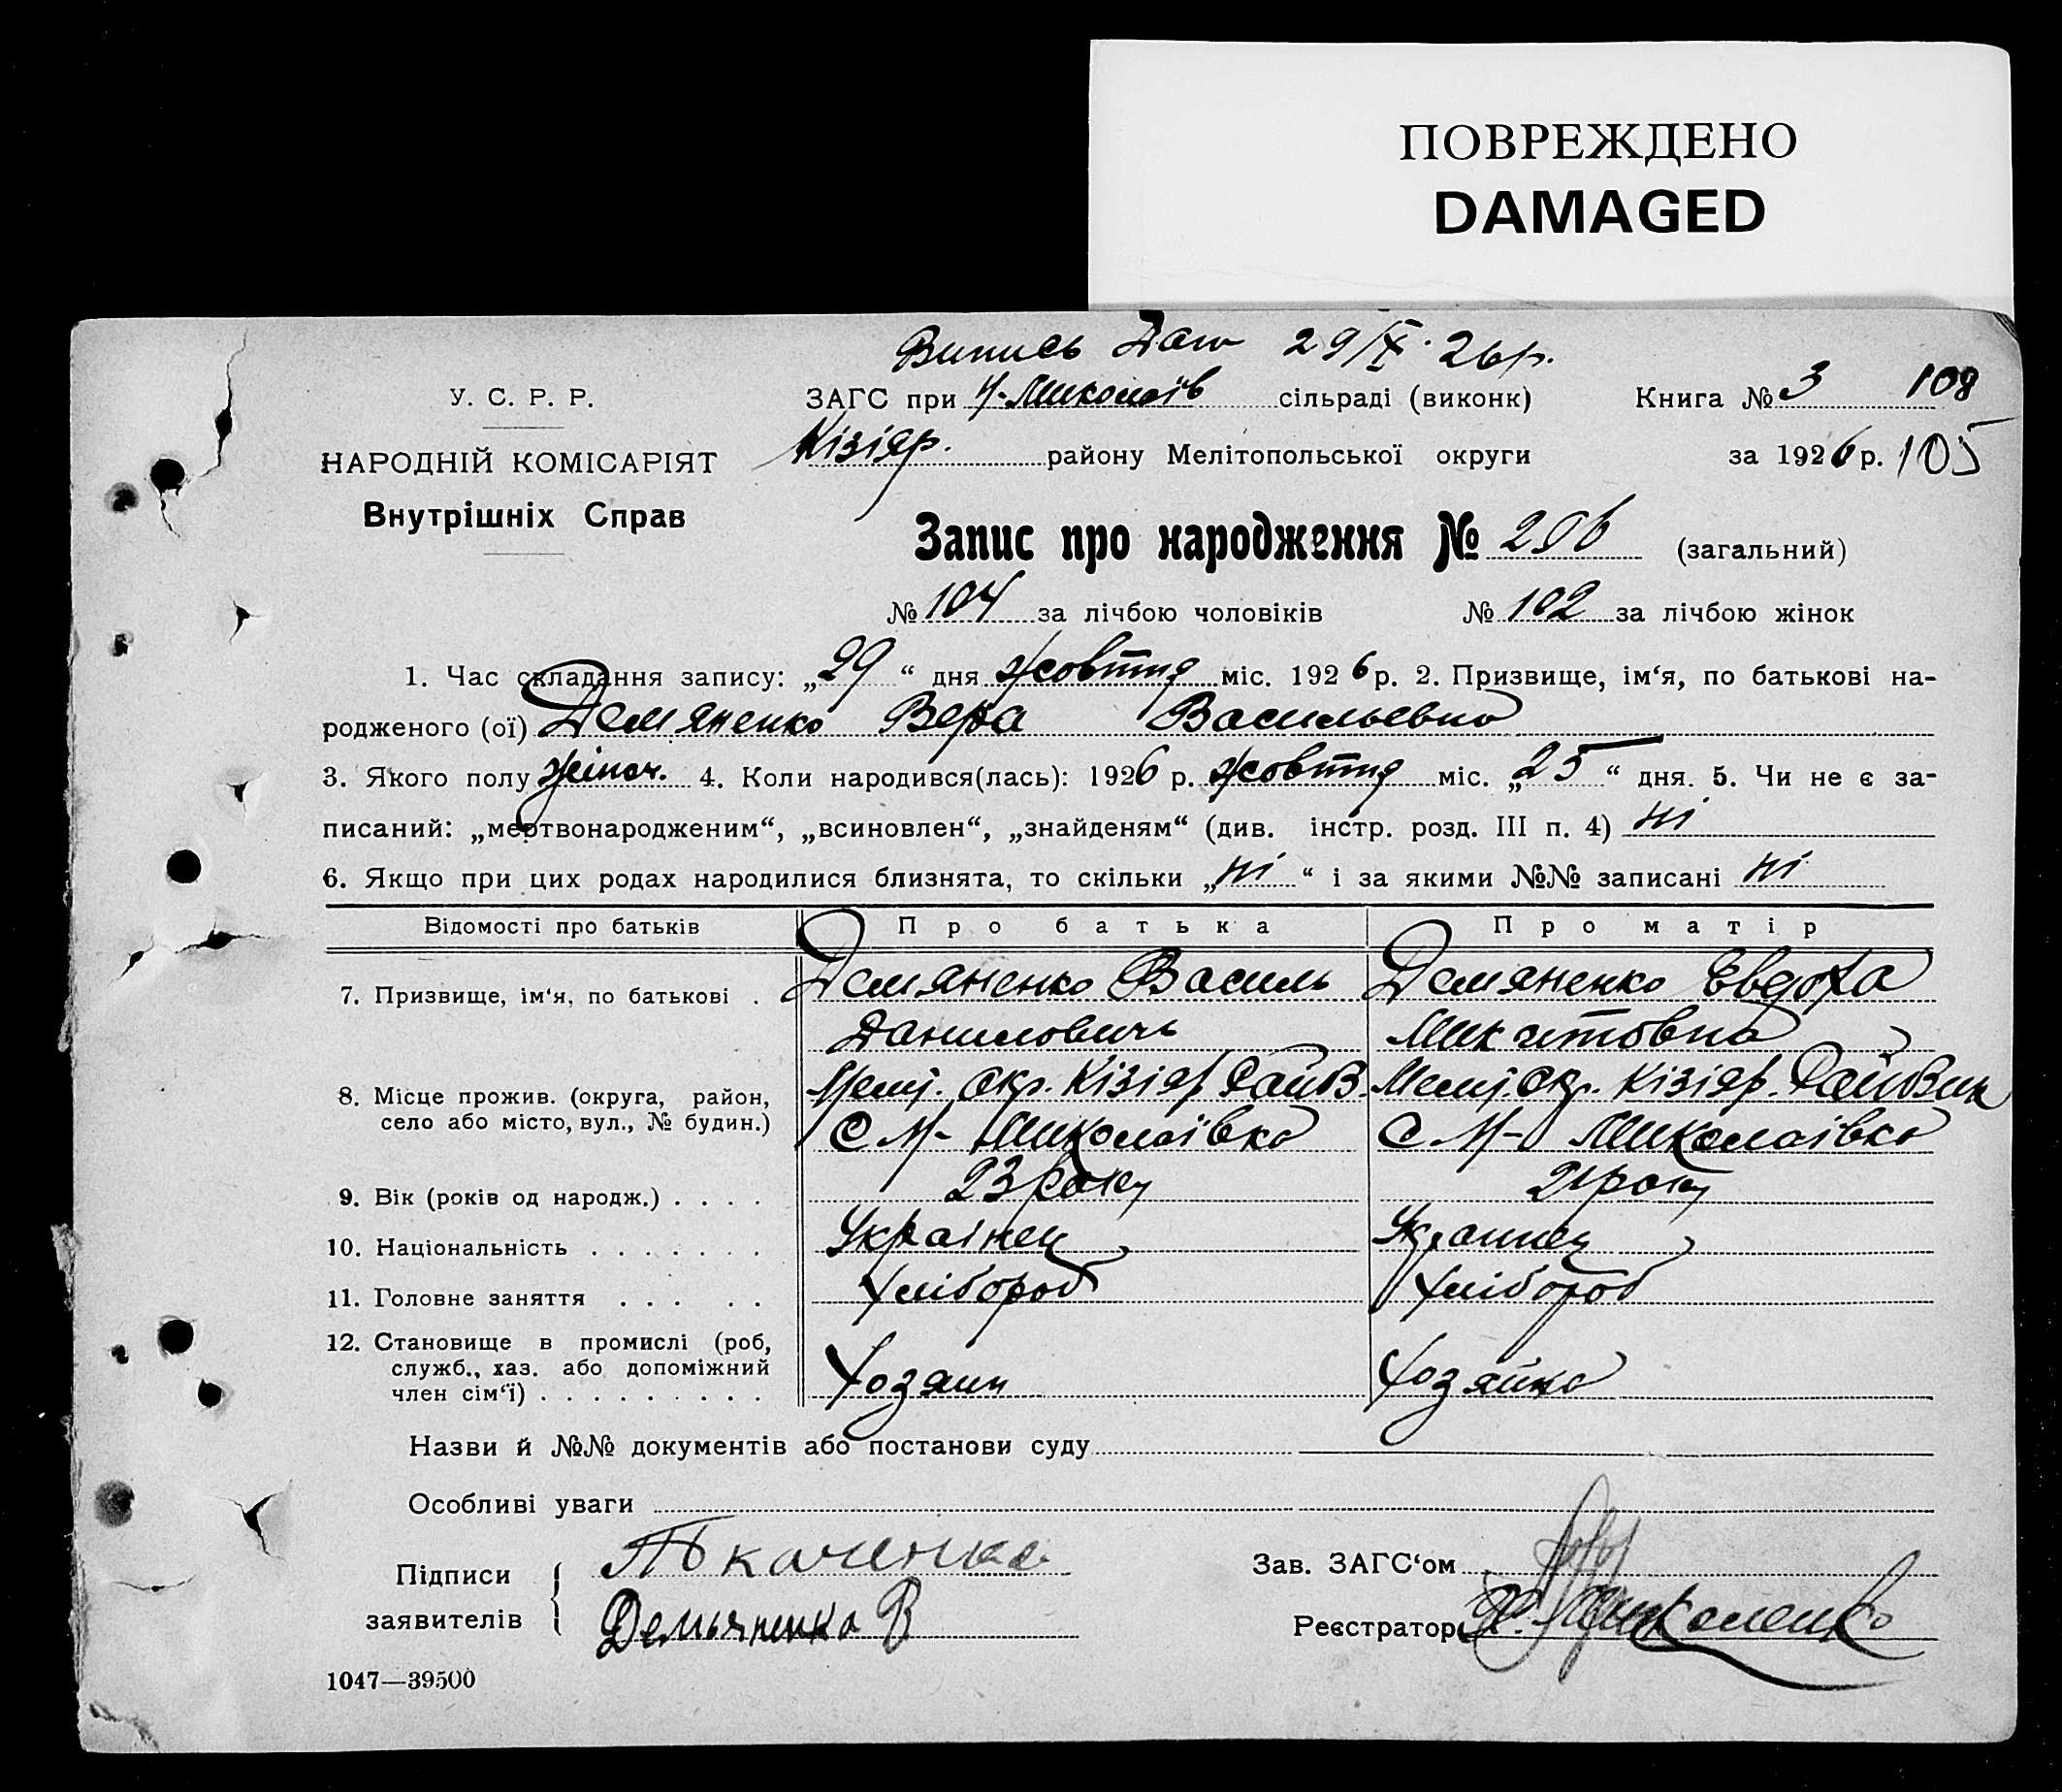 ПОВРЕЖДЕНО
DAMAGED
Випись Дана 29/X. 26 р.
У. С. Р. Р.
НАРОДНІЙ КОМІСАРІЯТ
Внутрішніх Справ
ЗАГС при Н-Миколаїв сільраді (виконк)
Кізіяр. району Мелітопольської округи
Книга № 3 108
за 1926 р. 105
Запис про народження № 206 (загальний)
№ 104 за лічбою чоловіків № 102 за лічбою жінок
1. Час складання запису: „29“ дня жовтня міс. 1926 р. 2. Призвище, ім‘я, по батькові на-
родженого (ої) Демяненко Вера Васильевна
3. Якого полу жіноч. 4. Коли народився(лась): 1926 р. жовтня міс. „25“ дня. 5. Чи не є за-
писаний: „мертвонародженим“, „всиновлен“, „знайденям“ (див. інстр. розд. III п. 4) ні
6. Якщо при цих родах народилися близнята, то скільки „ні“ і за якими №№ записані ні
Відомості про батьків Про батька Про матір
7. Призвище, ім‘я, по батькові . Демяненко Василь Демяненко Евдоха
Данилович Микитовна
8. Місце прожив. (округа, район, село або місто, вул., № будин.) Меліт. окр. Кізіяр Меліт. окр. Кізіяр.
С М- Миколаївка С М- Миколаівка
9. Вік (років од народж.) . . . . 23 року 21 року
10. Національність . . . . . . . Українец Украинец
11. Головне заняття . . . . . Хлібороб Хлібороб
12. Становище в промислі (роб, служб., хаз. або допоміжний член сім‘ї) . . . . . . . . . Хозяин Хозяйка
Назви й №№ документів або постанови суду
Особливі уваги
Підписи заявителів { Ткаченко
Демьяненко В
Зав. ЗАГС‘ом
Реєстратор
1047—39500